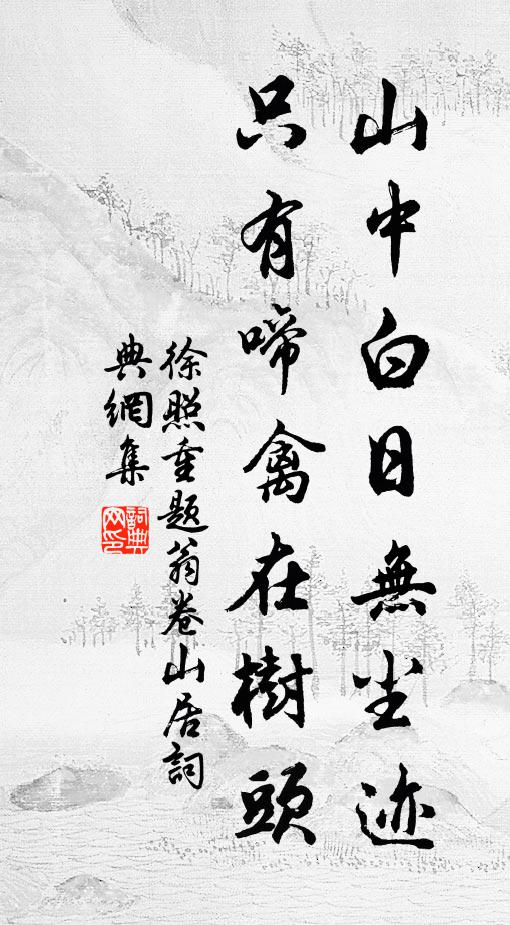 山中白日無尘迹
只有啼禽在樹頭
徐照重题翁卷山居詞
典網集
詞典网印